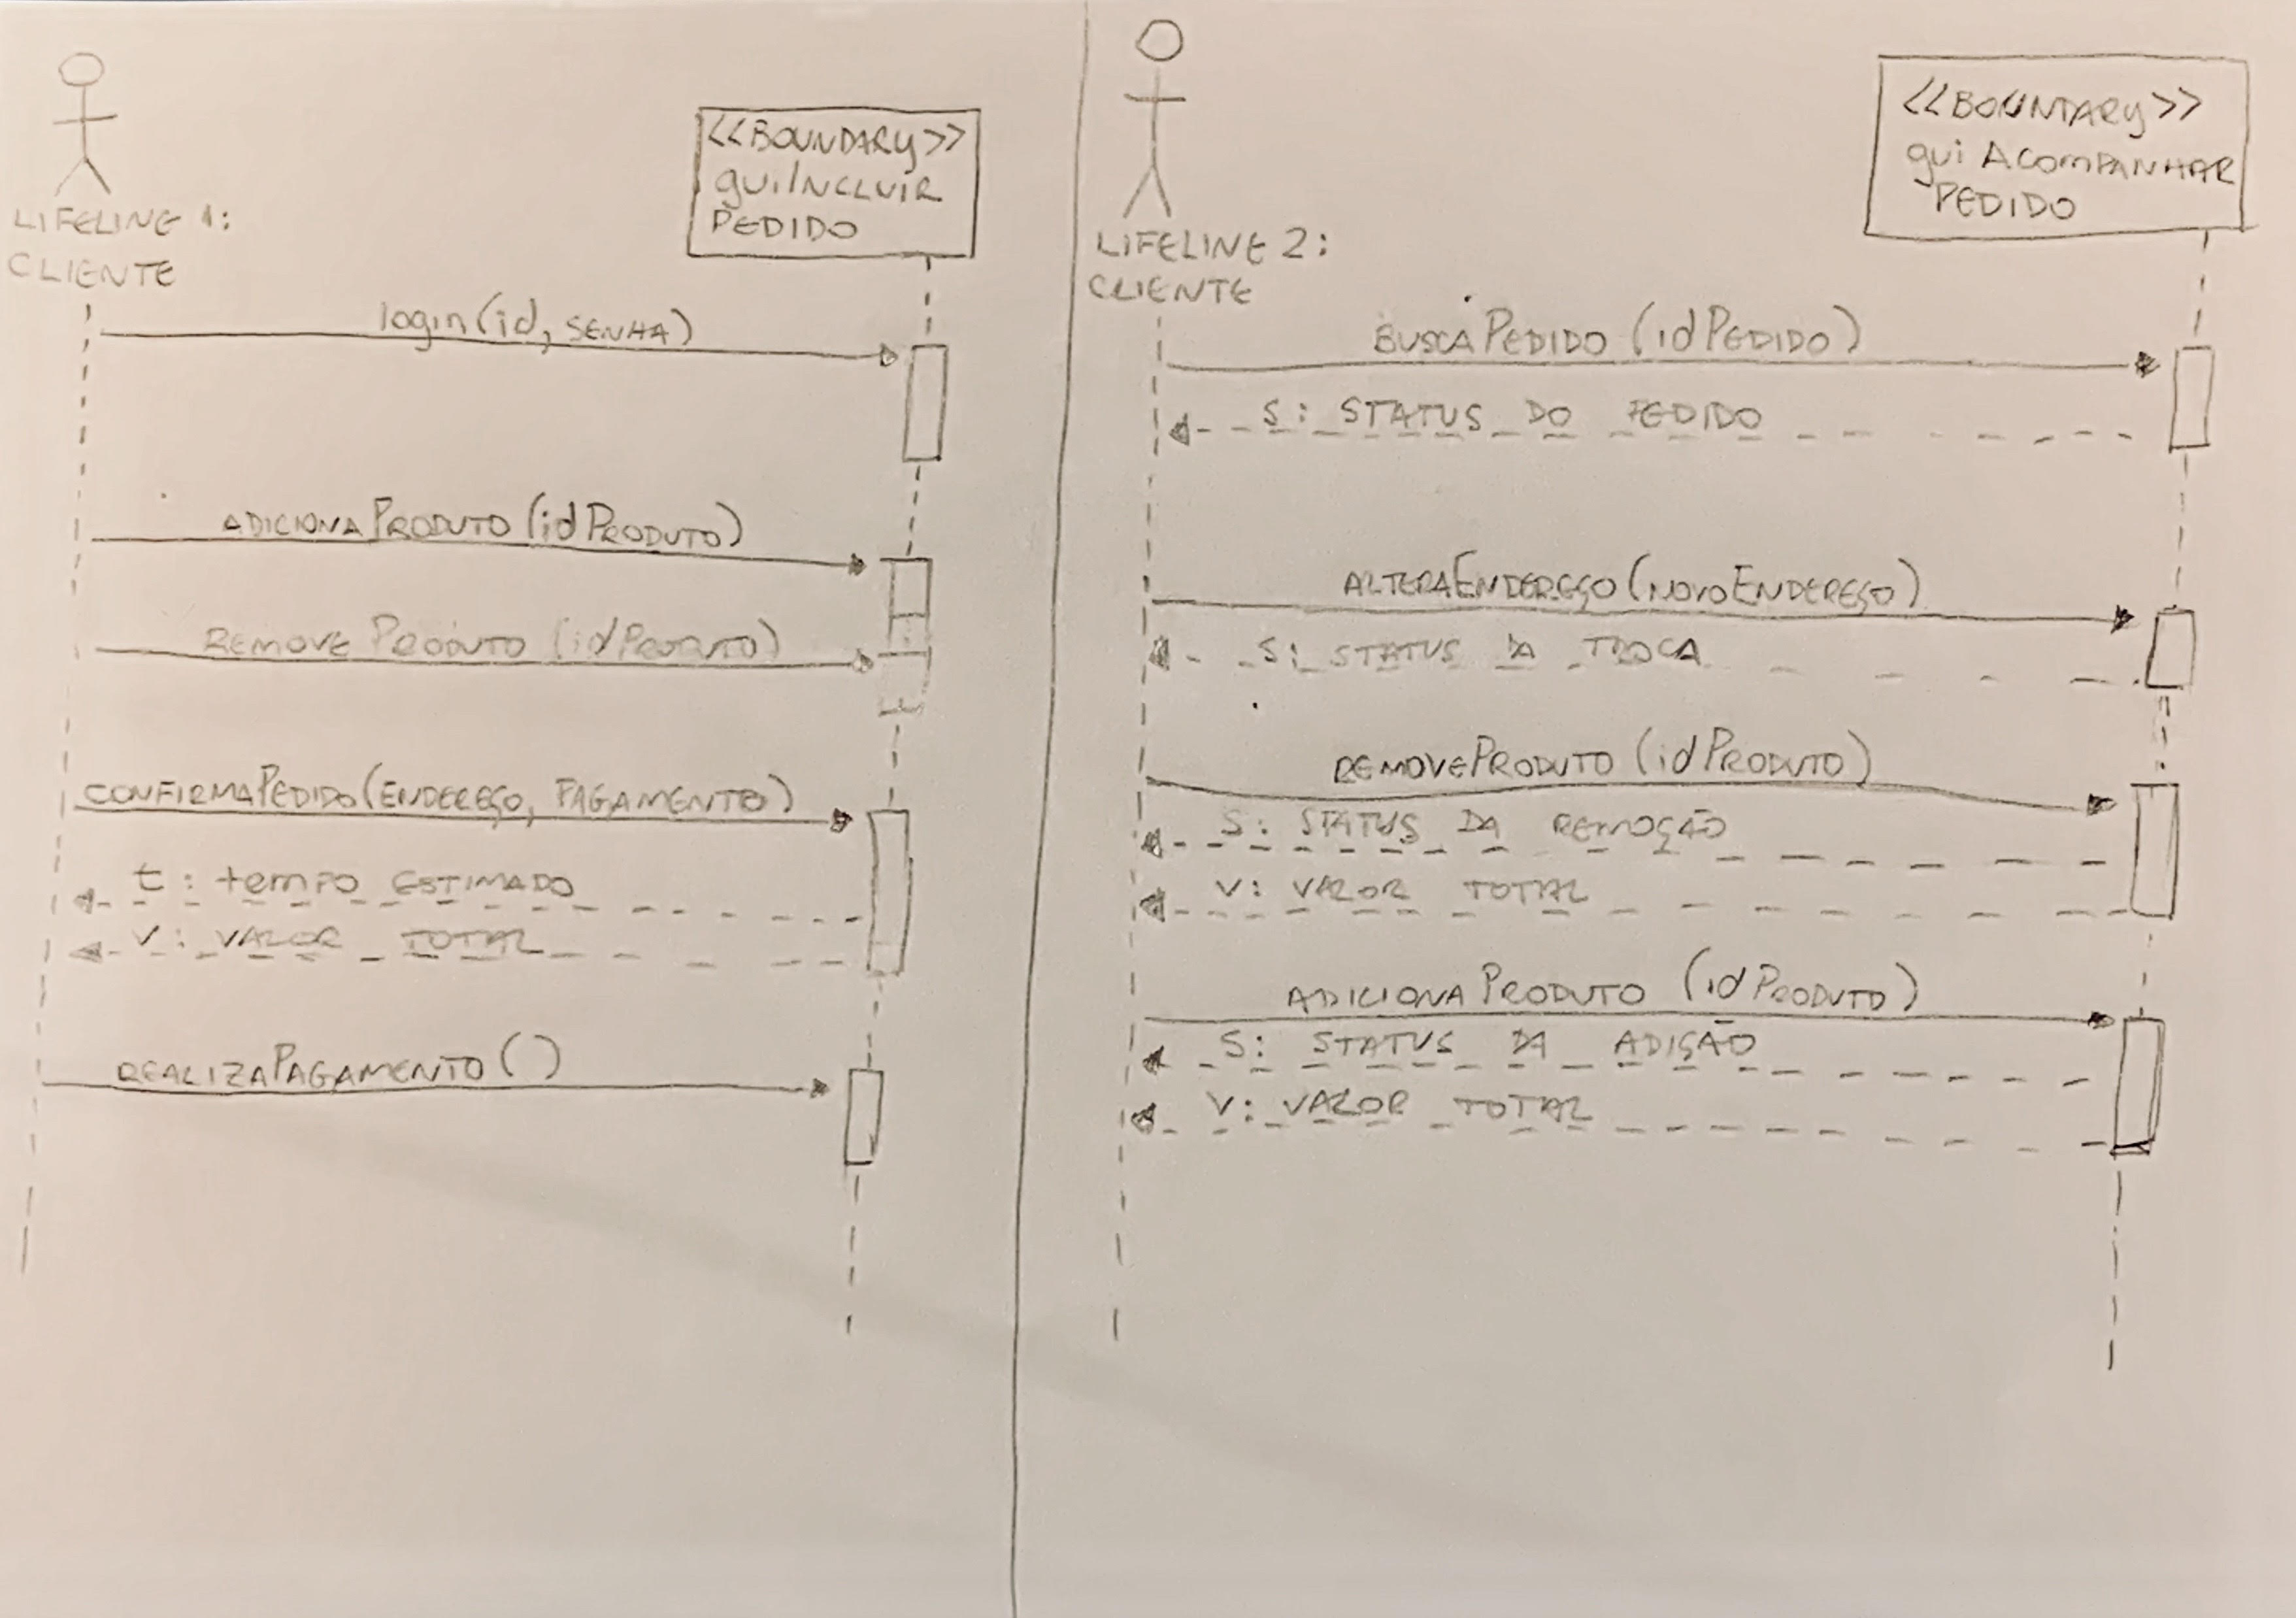 <<BOUNDARY>>
guiINCLUIR
PEDIDO
LIFELINE 1:
CLIENTE
login(id, SENHA)
ADICIONAPRODUTO(idPRODUTO)
REMOVEPRODUTO(idPRODUTO)
CONFIRMAPEDIDO(ENDEREÇO, PAGAMENTO)
t: tempo ESTIMADO
V: VALOR TOTAL
REALIZAPAGAMENTO()
<<BOUNDARY>>
gui ACOMPANHAR
PEDIDO
LIFELINE 2:
CLIENTE
BUSCAPEDIDO(idPEDIDO)
S: STATUS DO PEDIDO
ALTERAENDEREÇO(NOVOENDEREÇO)
S: STATUS DA TROCA
REMOVEPRODUTO(idPRODUTO)
S: STATUS DA REMOÇÃO
V: VALOR TOTAL
ADICIONAPRODUTO(idPRODUTO)
S: STATUS DA ADIÇÃO
V: VALOR TOTAL